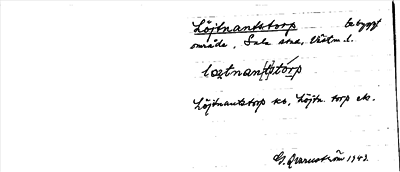 Löjtnantstorp bebyggt
område, Sala stad, Västm. l.
lœtnan(t)stórp
Löjtnantstorp ko, Löjtn. torp ek.
G. Qvarnström 1943.